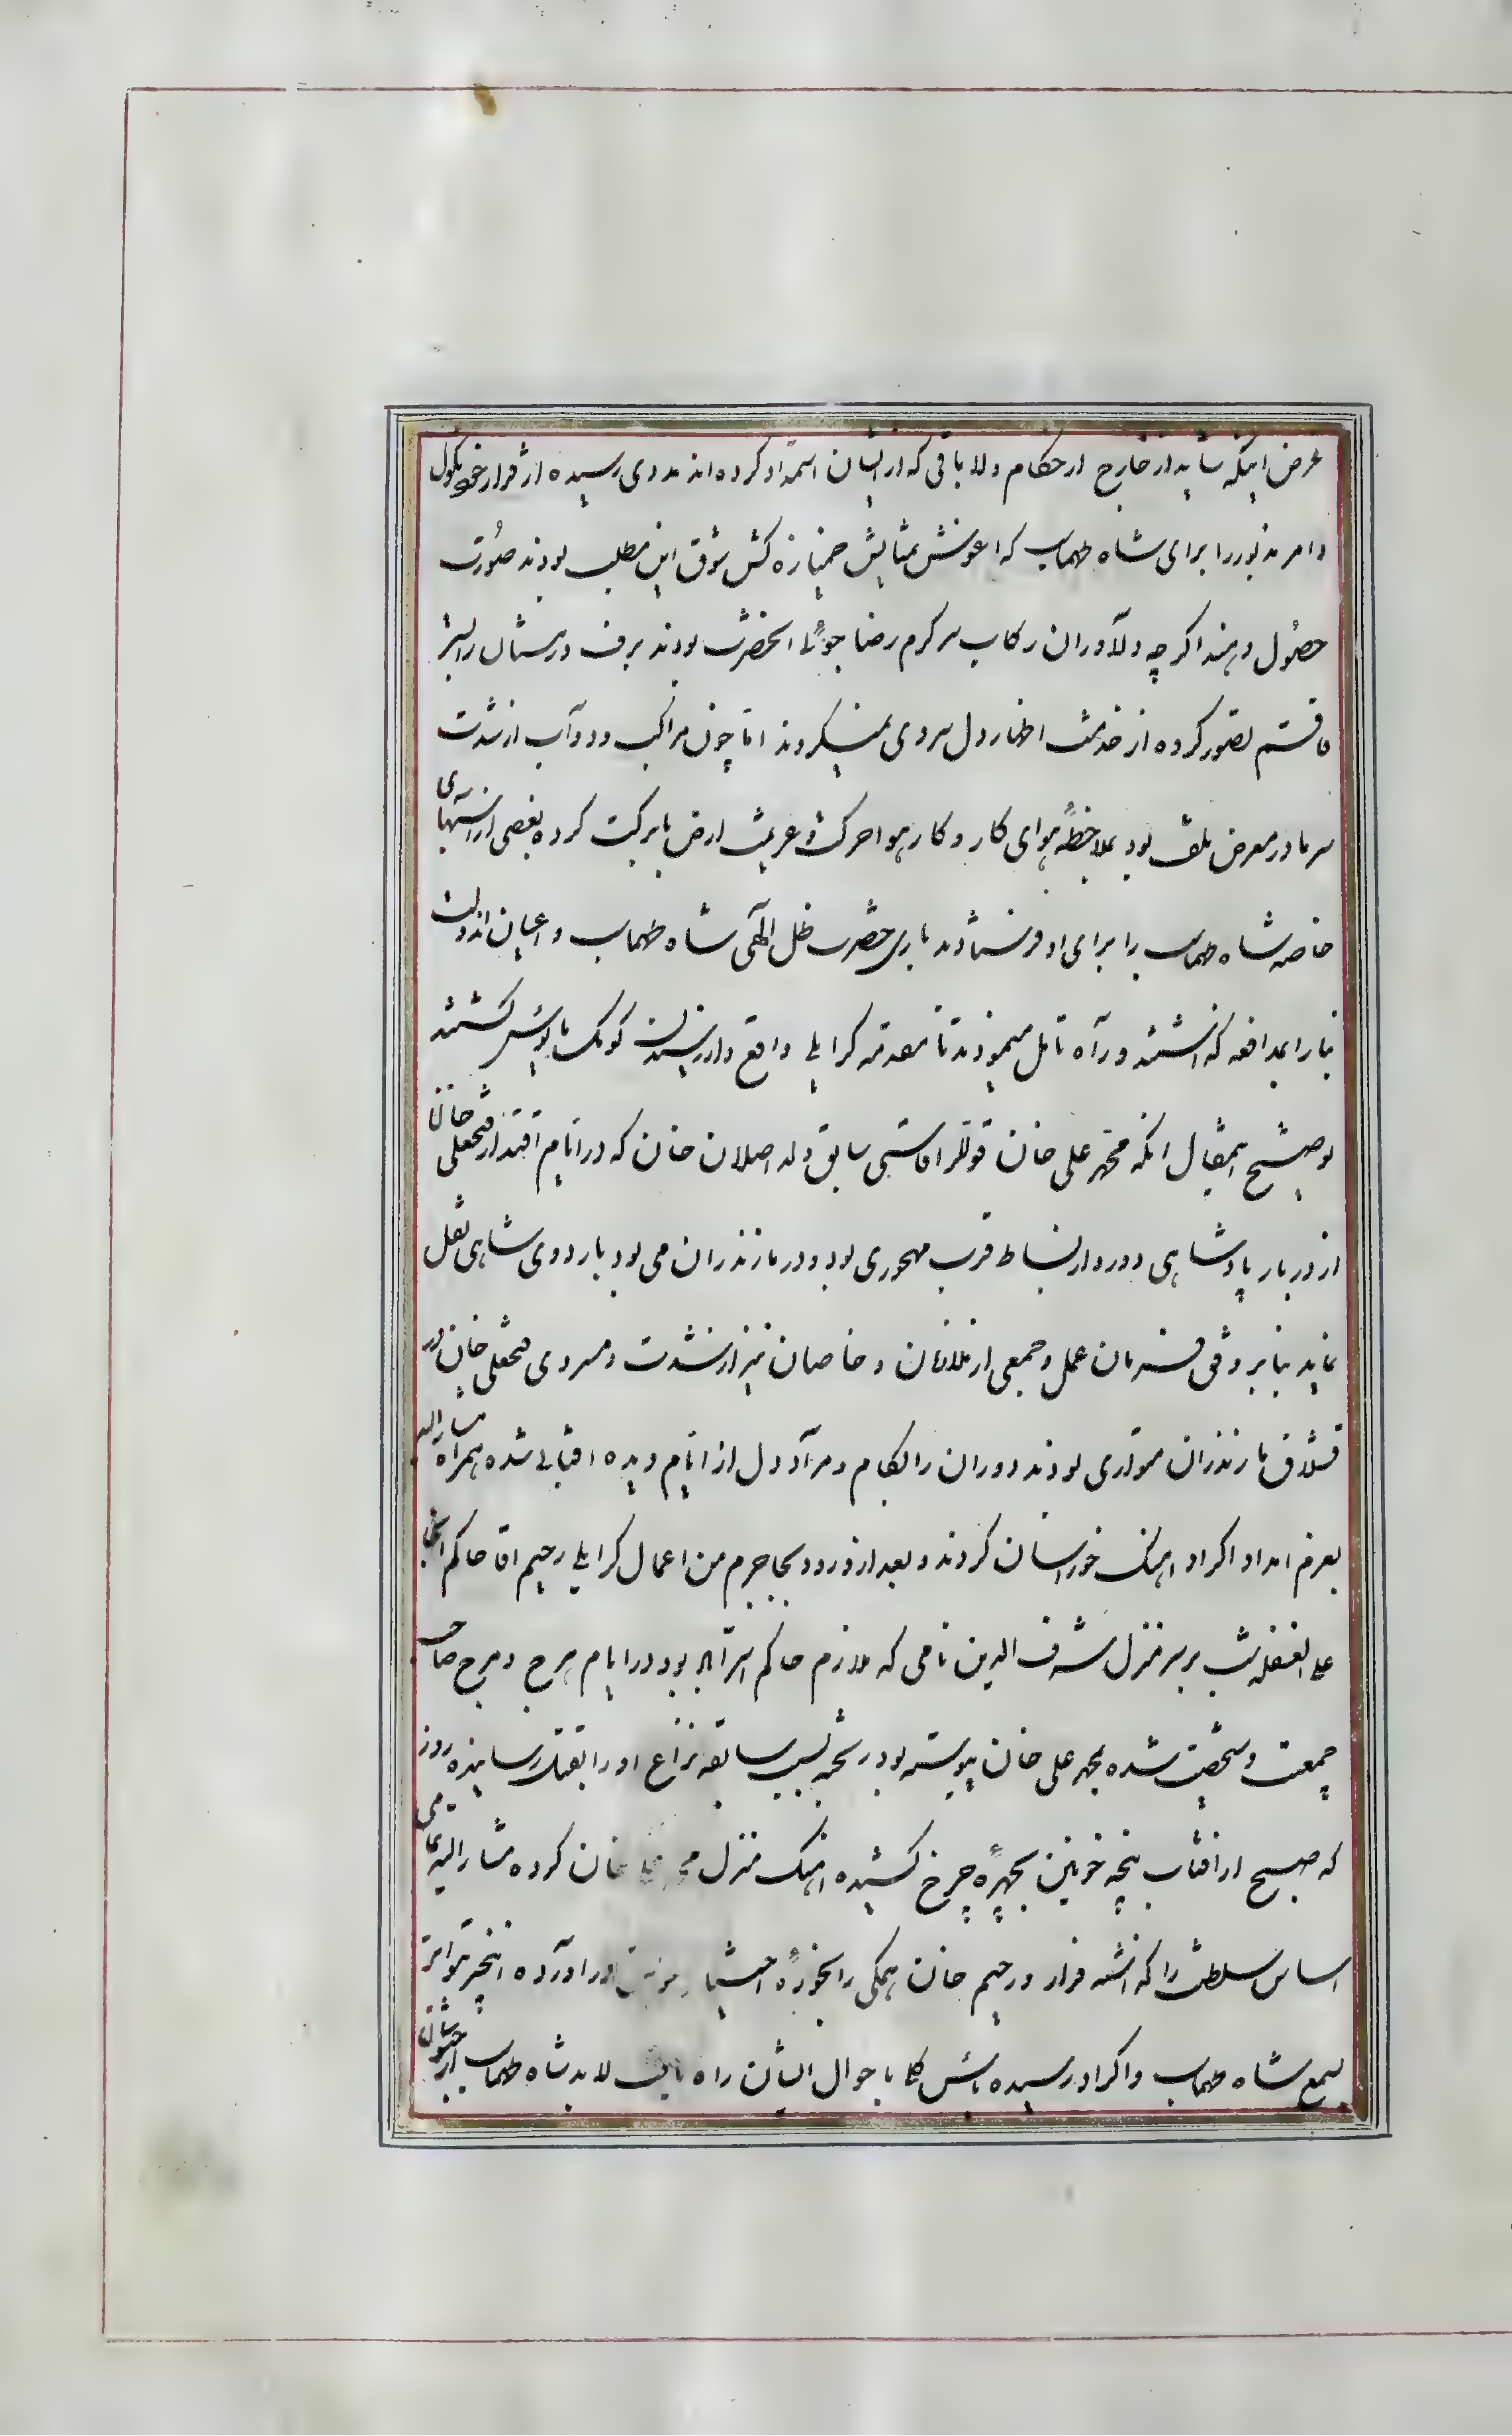 غرض اینکه شاید از خارج از حکام ولایاتی که از ایشان استمداد کرده‌اند مددی رسیده از قرار خود نکول
و امر مذبور را برای شاه طهماسب که اغوشش بمثابش خمیازه کش شوق این مطلب بودند صورت
حصول دهند اگر چه دلاوران رکاب سرکرم رضا جوئی انحضرت بودند برف در سمال را بستر
قاقم تصور کرده از خدمت اظهار دل سردی نمیکردند اما چون مراکب و دوآب از شدت
سرما در معرض تلف بود بملاحظهٔ هوای کار و کار هوا حرکت و عزیمت ارض با برکت کرده بعضی از اسبهای
خاصه شاه طهماسب را برای او فرستادند باری حضرت ظل الهی شاه طهماسب و اعیان اندولت
بنا را بمدافعه کذاشته در آه تامل میمودند تا مقدمه کرایلی واقع و از رسیدن کومک مایوس کشتند
توضیح اینمقال انکه محمد علی خان قوللر اقاسی سابق ولد اصلان خان که در ایام اقتدار فتحعلی خان
از دربار پادشاهی دور و از بساط قرب مهجوری بود و در مازندران می بود باردوی شاهی نقل
نماید بنابر وفی فرمان عمل و جمعی از غلامان و خاصان نیز از شدت و سردی فتحعلی خان در
قشلاق مازندران متواری بودند دوران را بکام و مرآد دل از ایام دیده افتابی شده همراه مشار الیه
بعزم امداد اکراد اهنک خوراسان کردند و بعد از ورود بجاجرم من اعمال کرایلی رحیم اقا حاکم انجا
علی الغفله شب بر سر منزل شرف الدین نامی که ملازم حاکم استراباد بود در ایام هرج و مرج صاحب
جمعت و شخصیت شده بمحمد علی خان پیوسته بود ریخته بسبب سابقه نزاع او را بقتل رسانیده روز
که صبح از افتاب پنجه خونین بچهرهٔ چرخ کشیده اهنک منزل محمد علی خان کرده مشار الیه تمامی
اساس سلطنت را کذاشته فرار و رحیم خان همکی را بحوزهٔ در اورده اینخبر متواتر
بسمع شاه طهماسب و اکراد رسیده یاس کلی باحوال ایشان راه یافت لابد شاه طهماسب از خبوشان